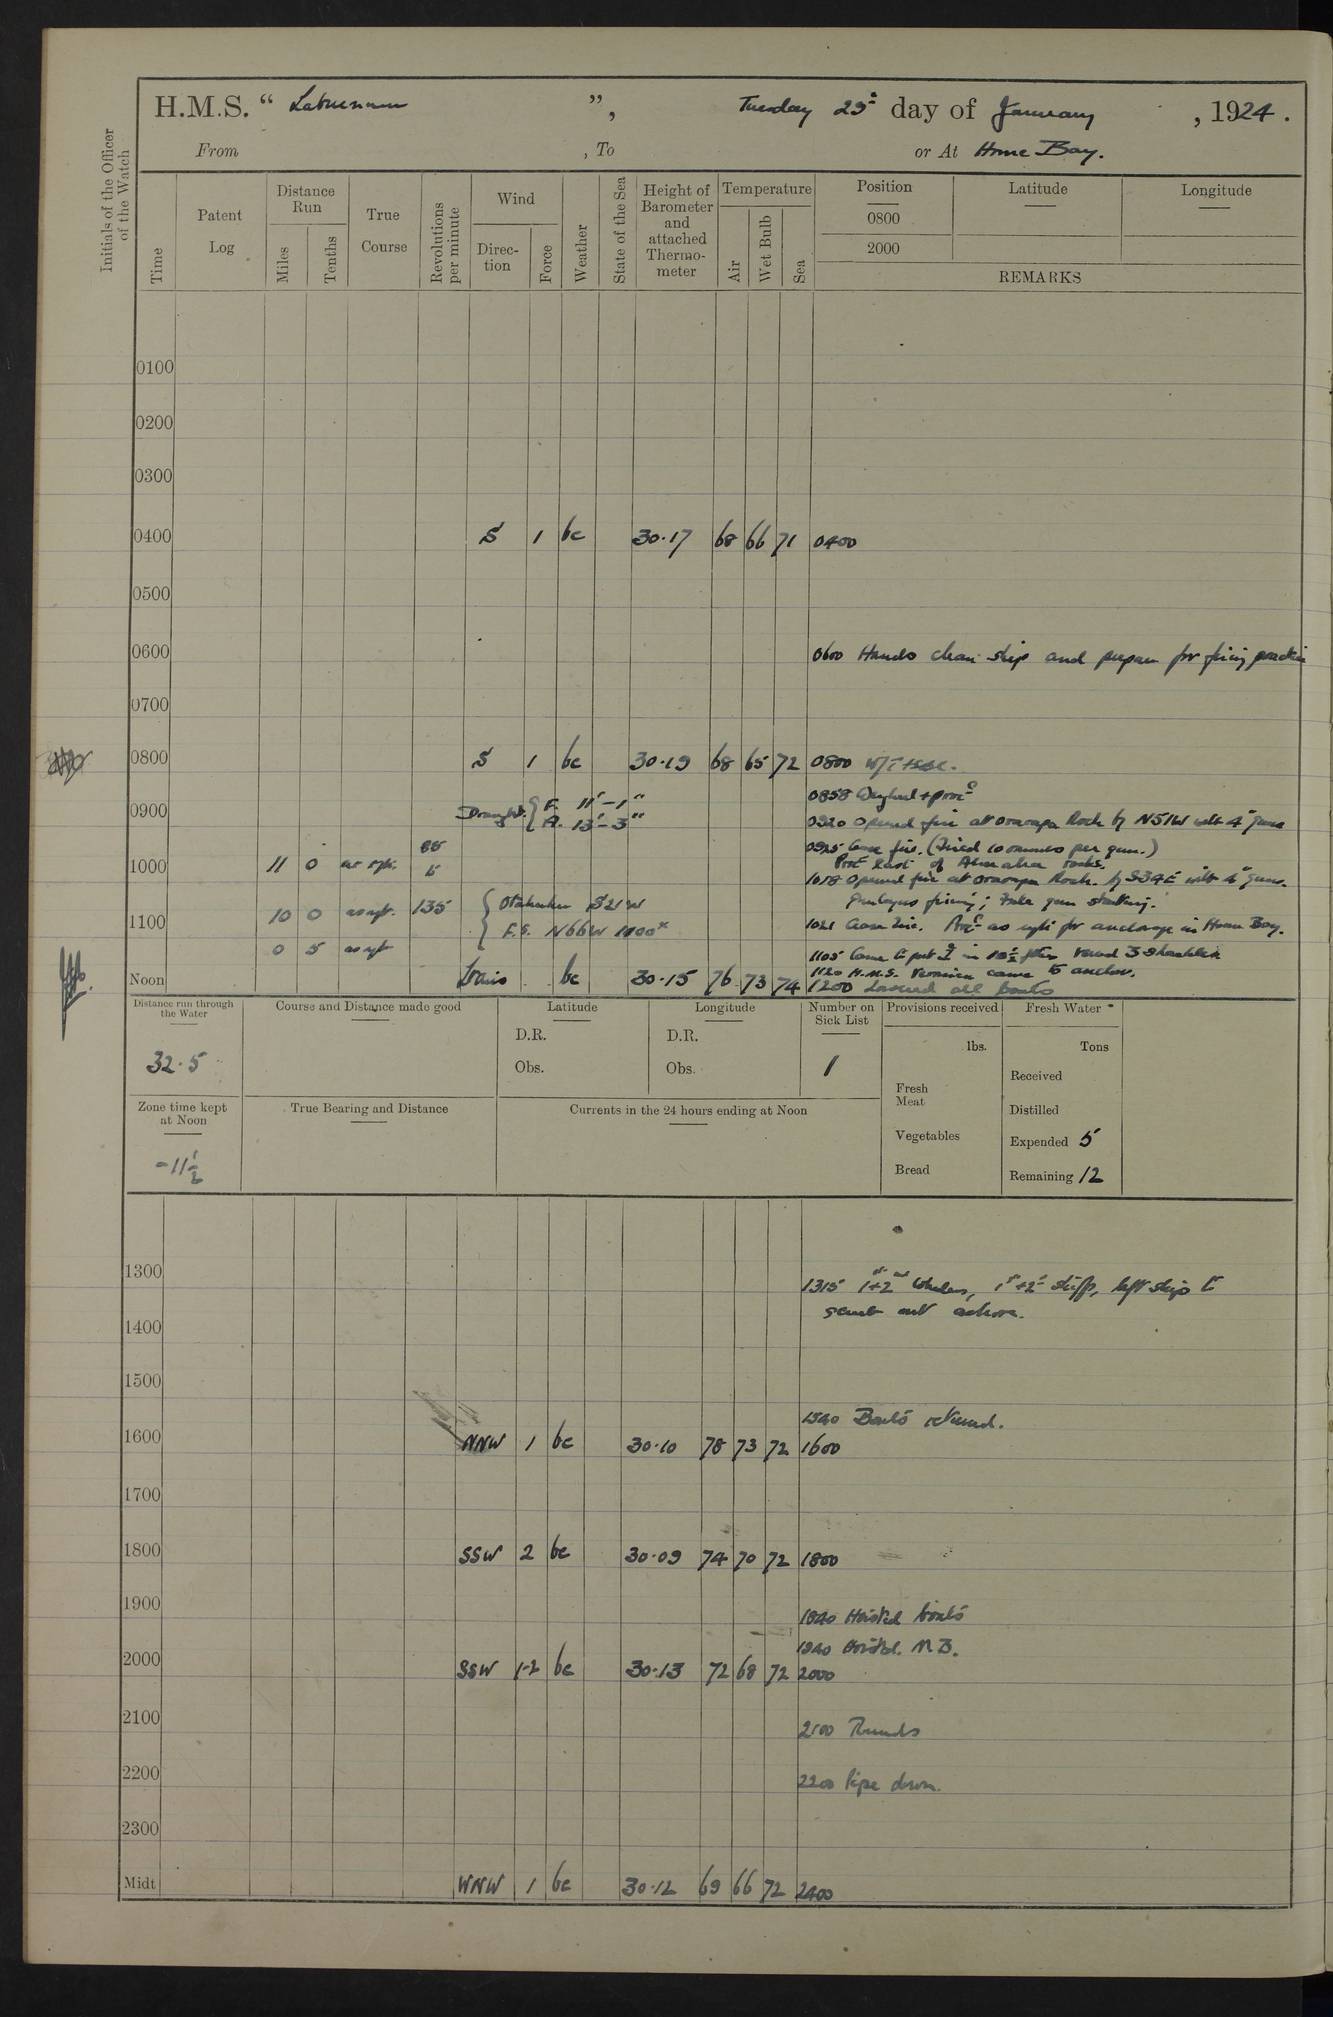 H.M.S. “ Laburnum ”, Tuesday 29th day of January, 1924.
From , To or At Home Bay.
Initials of the Officer of the Watch
Time
Patent Log
Distance Run
Miles
Tenths
True Course
Revolutions per minute
Wind
Direction
Force
Weather
State of the Sea
Height of Barometer and attached Thermometer
Temperature
Air
Wet Bulb
Sea
Position
Latitude
Longitude
0800
2000
REMARKS
0100
0200
0300
0400 S 1 bc 30.17 68 66 71 0400
0500
0600 0600 Hands clean ship and prepare for firing practice
0700
0800 S 1 bc 30.19 68 65 72 0800 W/T
0858 Weighed + procd
0900 Draught { F. 11'-1"
A. 13'-3"
0920 Opened fire at Rock by N51W with 4" guns
0925 Cease fire. (Fired 10 rounds per gun.)
1000 11 0 as rqte. 85
Procd East of rocks.
1018 Opened fire at Rock. by S34E with 4" guns.
firing; gun
1100 10 0 as rqt. 135 { Otahuhu S21W
F.S. N66W 1100x
1021 Cease fire. Procd as rqte for anchorage in Home Bay.
0 5 as rqt
1105 Came to port in 10½ fms veered 3 shackles
1120 H.M.S. Veronica came to anchor.
Noon bc 30.15 76 73 74 1200 Lowered all boats
Distance run through the Water
32.5
Course and Distance made good
Latitude
D.R.
Obs.
Longitude
D.R.
Obs.
Number on Sick List
1
Provisions received
lbs.
Fresh Meat
Vegetables
Bread
Fresh Water
Tons
Received
Distilled
Expended 5
Remaining 12
Zone time kept at Noon
-11½
True Bearing and Distance
Currents in the 24 hours ending at Noon
1300
1315 1st + 2nd Whalers, 1st + 2nd skiffs, left ship to
1400
ashore.
1500
1540 Boats returned.
1600 NNW 1 bc 30.10 78 73 72 1600
1700
1800 SSW 2 bc 30.09 74 70 72 1800
1900
1840 Hoisted boats
1940 Hoisted M.B.
2000 SSW 1-2 bc 30.13 72 68 72 2000
2100 2100 Rounds
2200 2200 Pipe down.
2300
Midt WNW 1 bc 30.12 69 66 72 2400